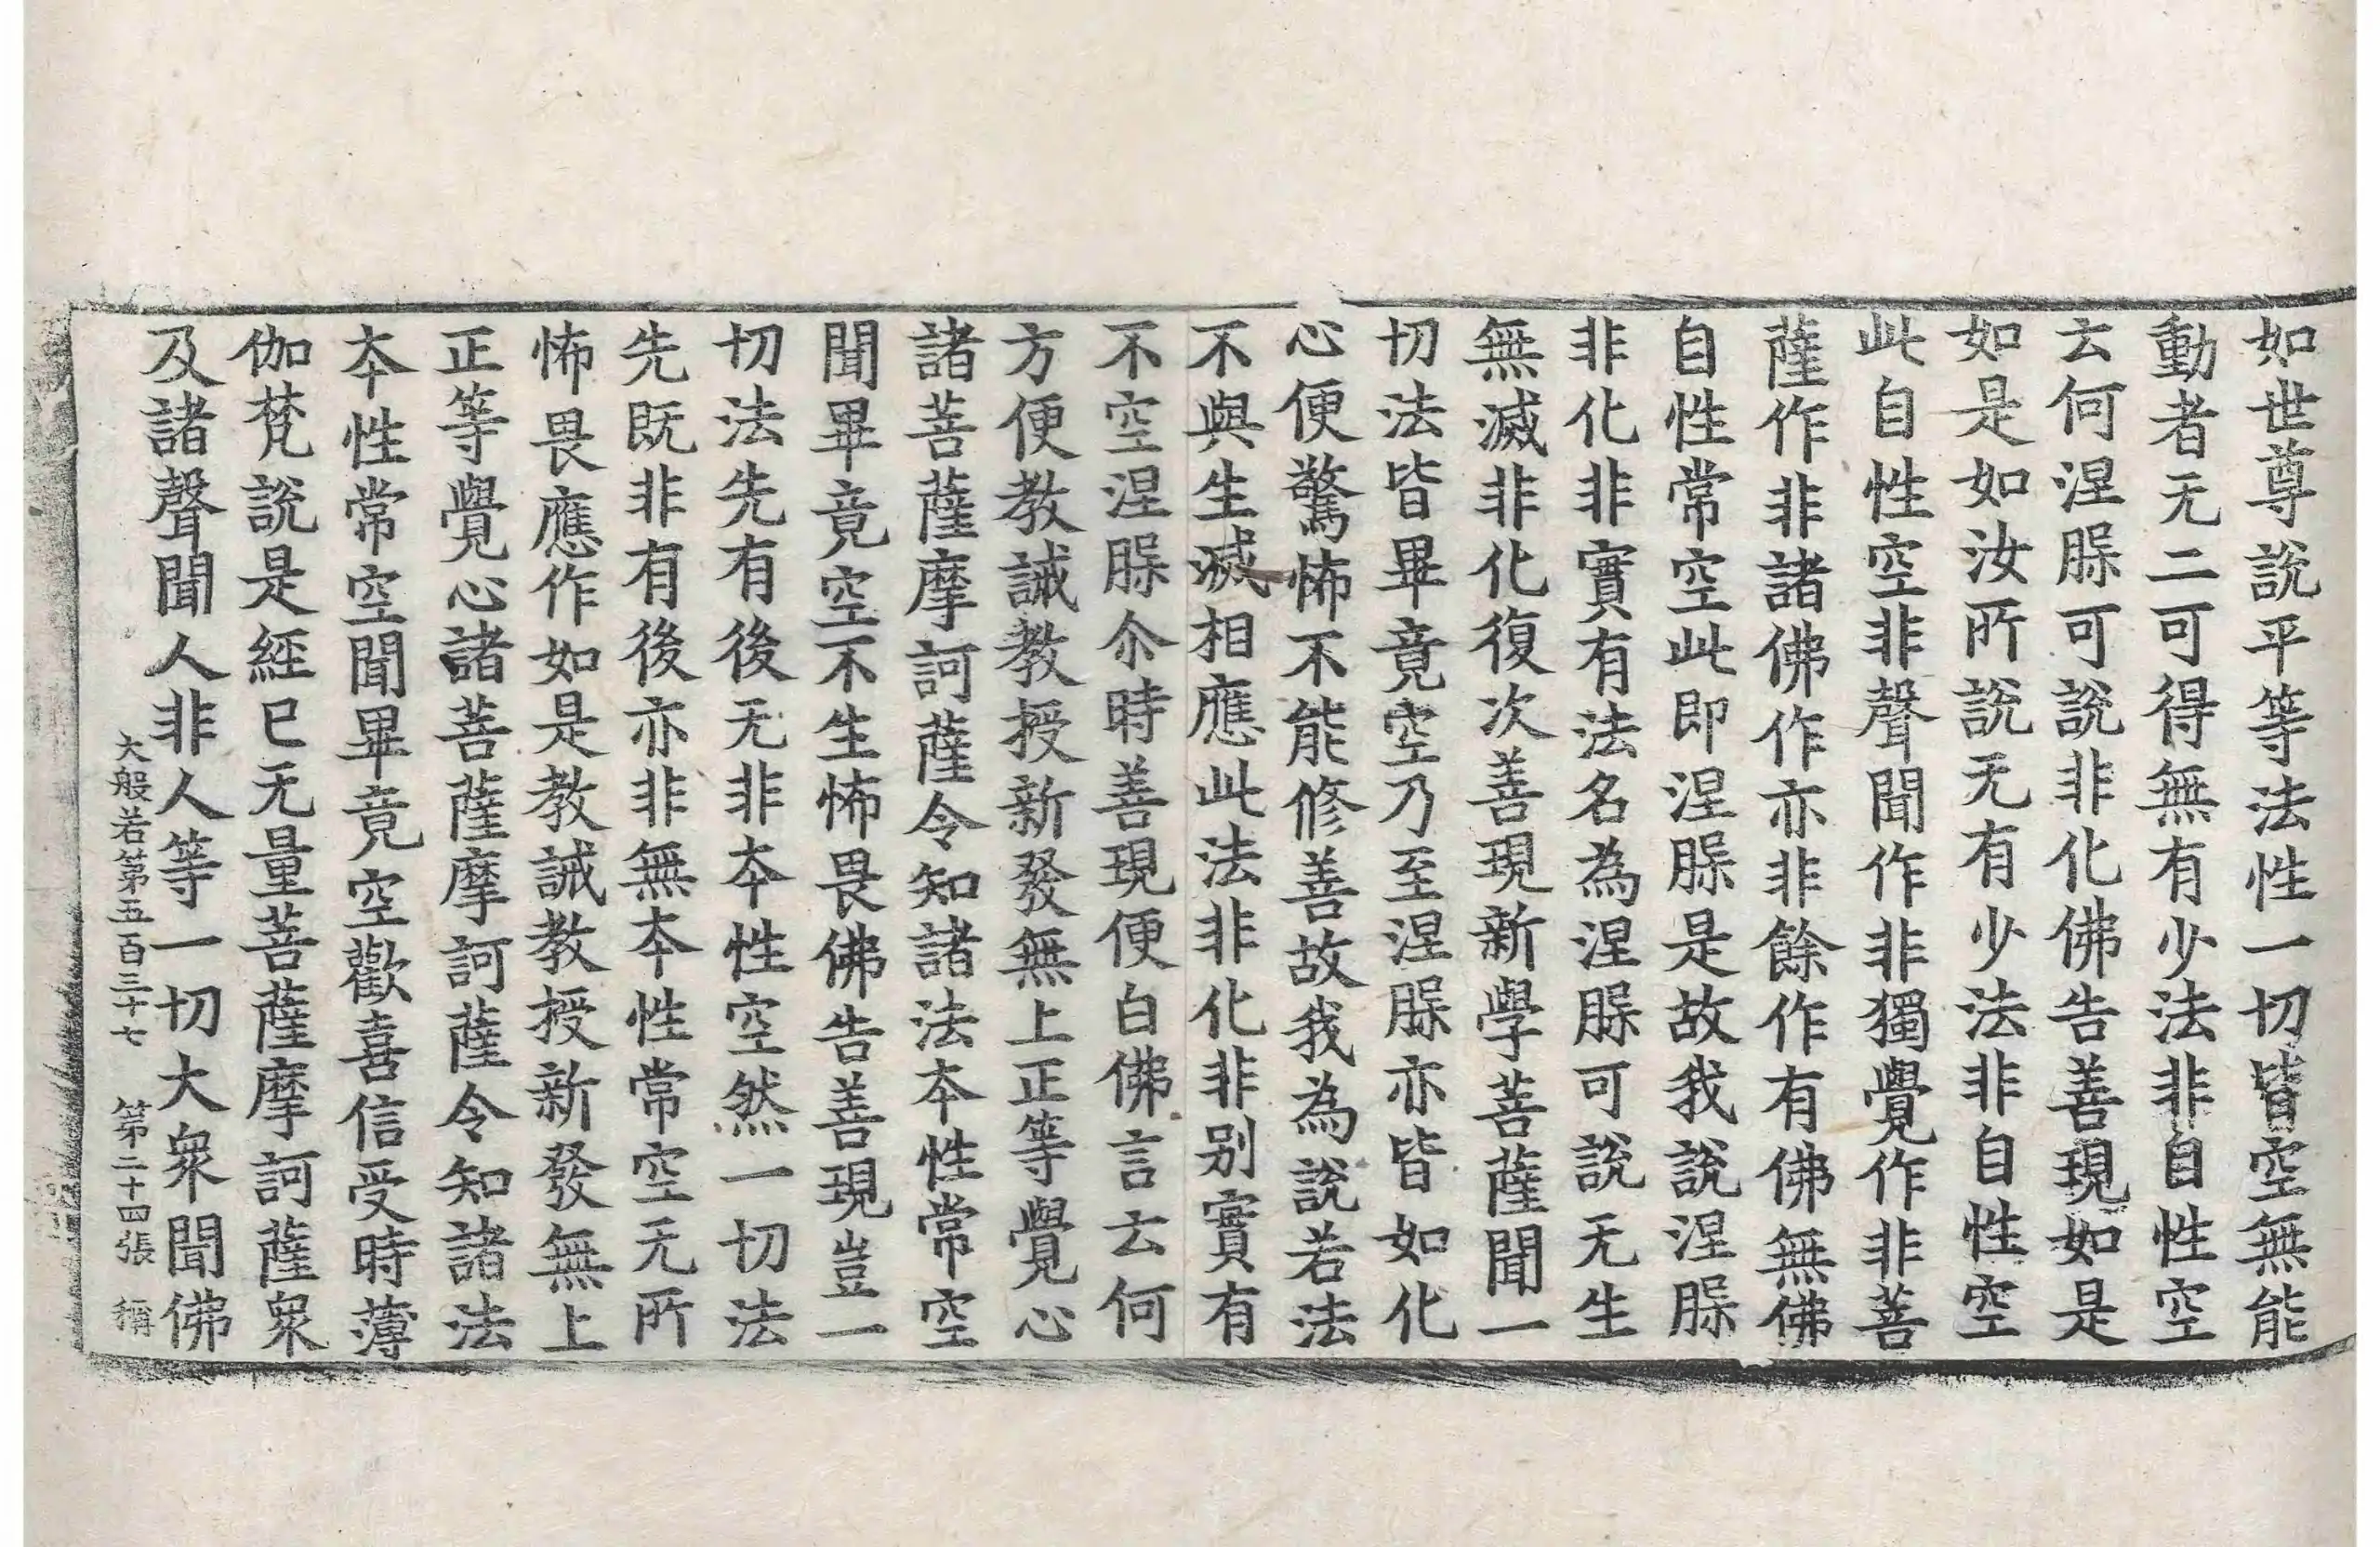 如世尊說平等法性一切皆空無能
動者无二可得無有少法非自性空
云何涅脲可說非化佛告善現如是
如是如汝所說无有少法非自性空
此自性空非聲聞作非獨覺作非菩
薩作非諸佛作亦非餘作有佛無佛
自性常空此即涅脲是故我說涅脲
非化非實有法名為涅脲可說无生
無滅非化復次善現新學菩薩聞一
切法皆畢竟空乃至涅脲亦皆如化
心便驚怖不能修善故我為說若法
不與生滅相應此法非化非別實有
不空涅脲尒時善現便白佛言云何
方便教誡教授新發無上正等覺心
諸菩薩摩訶薩令知諸法本性常空
聞畢竟空不生怖畏佛告善現豈一
切法先有後无非本性空然一切法
先既非有後亦非無本性常空无所
怖畏應作如是教誡教授新發無上
正等覺心諸菩薩摩訶薩令知諸法
本性常空聞畢竟空歡喜信受時薄
伽梵說是經已无量菩薩摩訶薩衆
及諸聲聞人非人等一切大衆聞佛
大般若第五百三十七 第二十四張 稱